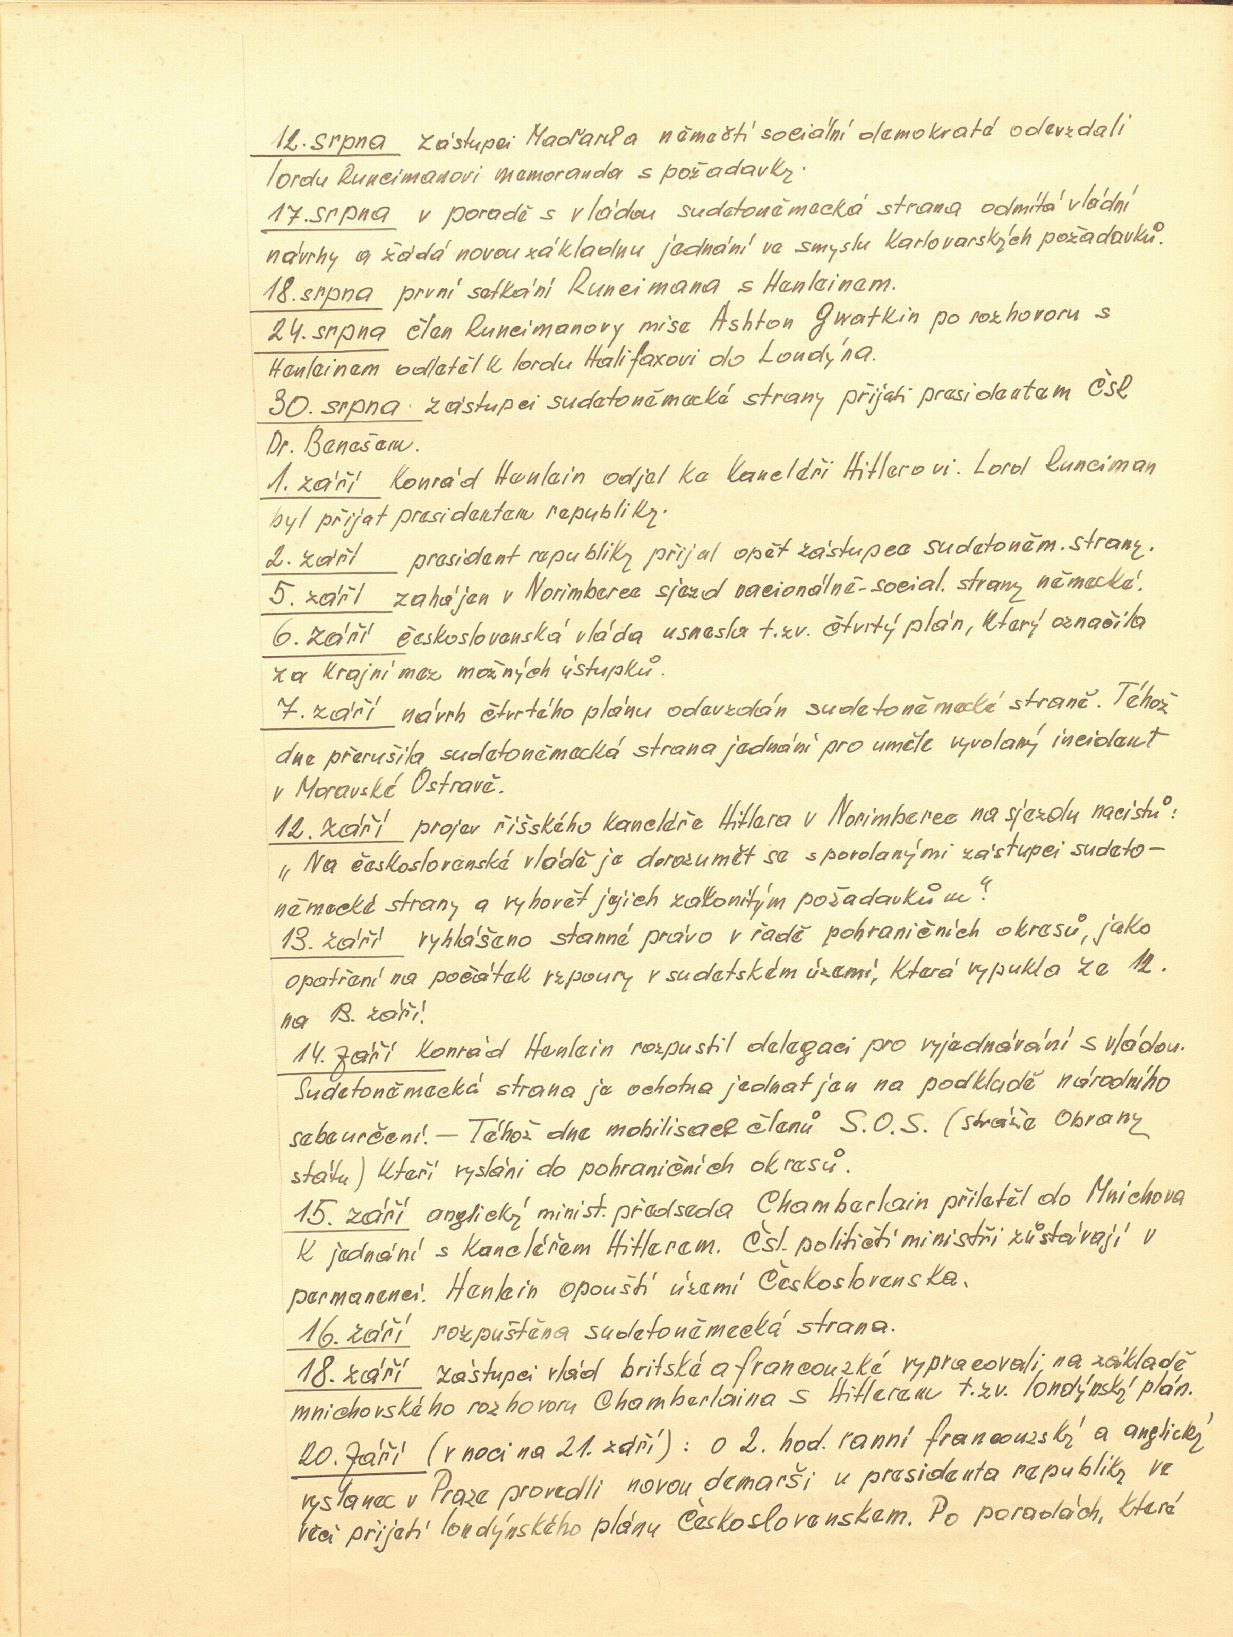 12. srpna zástupci Maďarů a němečtí sociální demokraté odevzdali
lordu Runcimanovi memoranda s požadavky.
17. srpna v poradě s vládou sudetoněmecká strana odmítá vládní
návrhy a žádá novou základnu jednání ve smyslu Karlovarských požadavků.
18. srpna první setkání Runcimana s Henleinem.
24. srpna člen Runcimanovy mise Ashton Gwatkin po rozhovoru s
Henleinem odletěl k lordu Halifaxovi do Londýna.
30. srpna zástupci sudetoněmecké strany přijati presidentem Čsl
Dr. Benešem.
1. září Konrád Henlein odjel ke kancléři Hitlerovi. Lord Runciman
byl přijat presidentem republiky.
2. září president republiky přijal opět zástupce sudetoněm. strany.
5. září zahájen v Norimberce sjezd nacionálně-social. strany německé.
6. září československá vláda usnesla t.zv. čtvrtý plán, který označila
za krajní mez možných ústupků.
7. září návrh čtvrtého plánu odevzdán sudetoněmecké straně. Téhož
dne přerušila sudetoněmecká strana jednání pro uměle vyvolaný incident
v Moravské Ostravě.
12. září projev říšského kancléře Hitlera v Norimberce na sjezdu nacistů:
„Na československé vládě je dorozumět se s povolanými zástupci sudeto-
německé strany a vyhovět jejich zákonitým požadavkům“.
13. září vyhlášeno stanné právo v řadě pohraničních okresů, jako
opatření na počátek vzpoury v sudetském území, která vypukla ze 12.
na 13. září.
14. září Konrád Henlein rozpustil delegaci pro vyjednávání s vládou.
Sudetoněmecká strana je ochotna jednat jen na podkladě národního
sebeurčení. — Téhož dne mobilisace členů S.O.S. (stráže Obrany
státu) kteří vysláni do pohraničních okresů.
15. září anglický minist. předseda Chamberlain přiletěl do Mnichova
k jednání s kancléřem Hitlerem. Čsl. političtí ministři zůstávají v
permanenci. Henlein opouští území Československa.
16. září rozpuštěna sudetoněmecká strana.
18. září zástupci vlád britské a francouzské vypracovali, na základě
mnichovského rozhovoru Chamberlaina s Hitlerem t.zv. londýnský plán.
20. září (v noci na 21. září): o 2. hod. ranní francouzský a anglický
vyslanec v Praze provedli novou demarši u presidenta republiky ve
věci přijetí londýnského plánu Československem. Po poradách, které